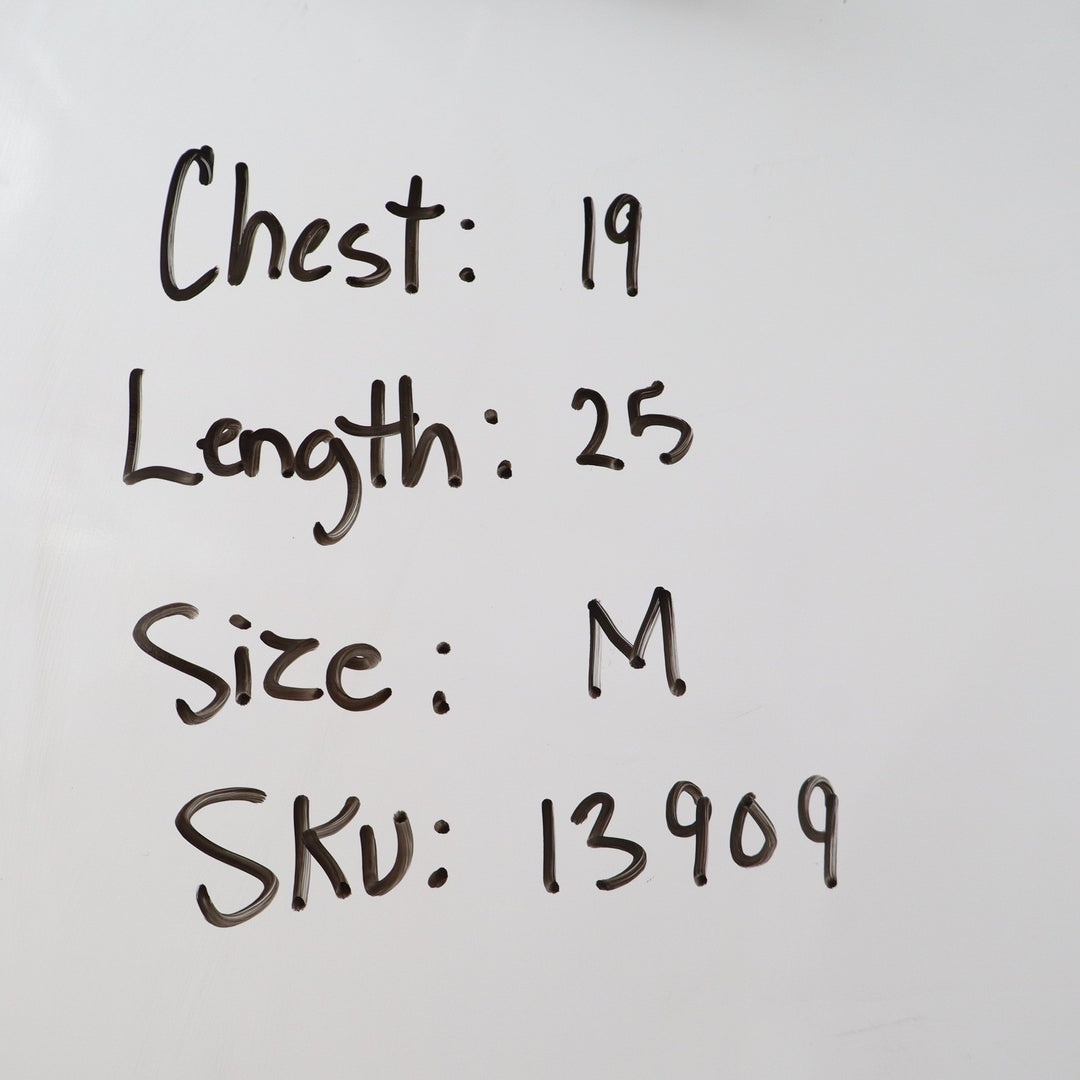 Chest: 19
Length: 25
Size: M
SKU: 13909